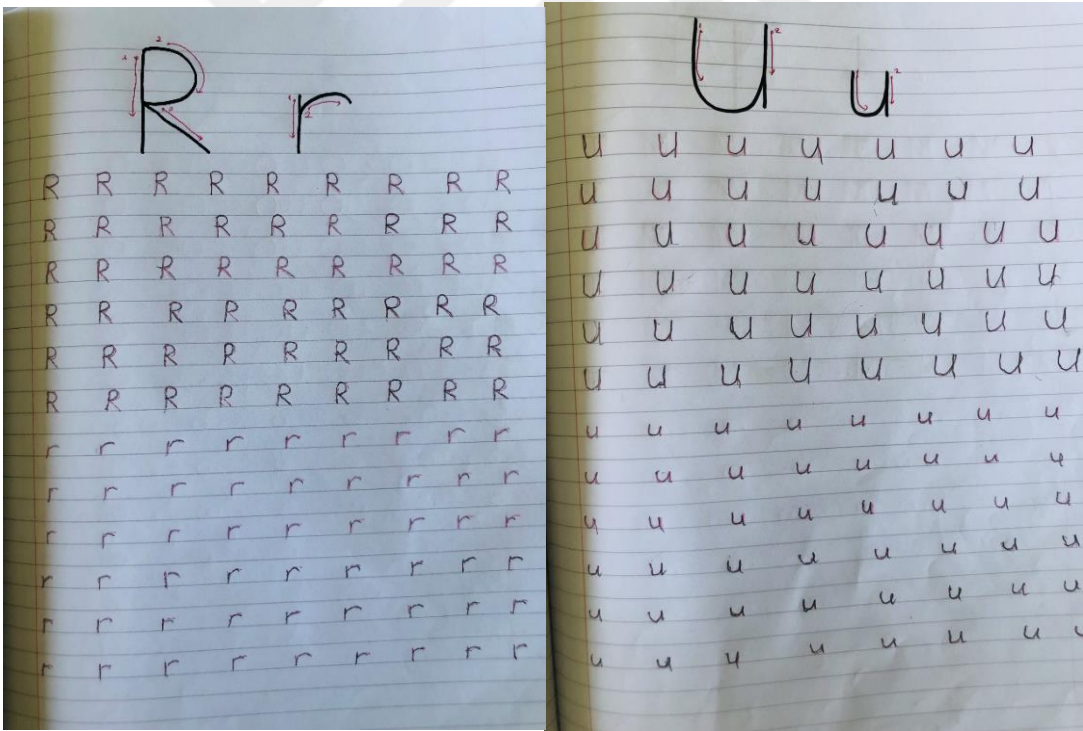 R r
R R R R R R R R R
R R R R R R R R R
R R R R R R R R R
R R R R R R R R R
R R R R R R R R R
R R R R R R R R R
r r r r r r r r r
r r r r r r r r r
r r r r r r r r r
r r r r r r r r r
r r r r r r r r r
r r r r r r r r r
U u
U U U U U U U
U U U U U U U
U U U U U U U U
U U U U U U U U
U U U U U U U U
U U U U U U U U
u u u u u u u u
u u u u u u u u
u u u u u u u u
u u u u u u u u
u u u u u u u u
u u u u u u u u